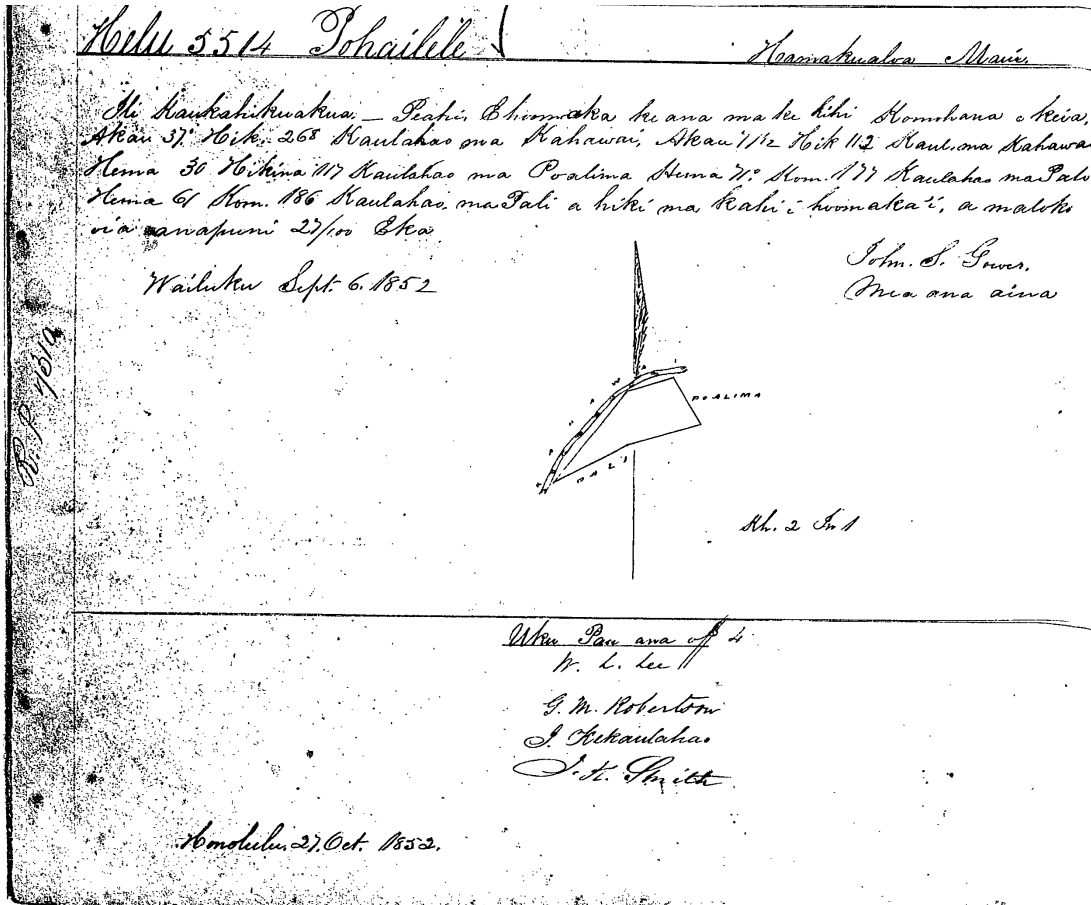 Helu 5514 Pohailele
Hamakualoa Maui.
Ili Kaukahikuakua. — Peahi, Ehoomaka ke ana ma ke kihi Komohana o keia,
Akau 37° Hik. 268 Kaulahao ma Kahawai, Akau 71½ Hik 112 Kaul. ma Kahawai
Hema 30 Hikina 117 Kaulahao ma Poalima Hema 71° Kom. 177 Kaulahao ma Pali
Hema 61 Kom. 186 Kaulahao, ma Pali a hiki ma kahi i hoomaka'i, a maloko
oia anapuni 27/100 Eka
John. S. Gower.
Wailuku Sept. 6. 1852
Mea ana aina
R. P. 4510
KAHAWAI
POALIMA
PALI
Kh. 2 In 1
Uku Pau ana off 4
W. L. Lee
G. M. Robertson
J. Kekaulahao
J. K. Smith
Honolulu 27. Oct. 1852.